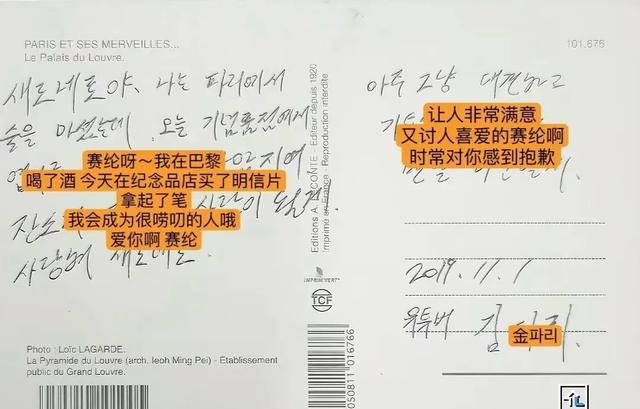 PARIS ET SES MERVEILLES...
Le Palais du Louvre.
101.676
새로네로야, 나는 파리에서
술을 마셨는데 오늘 기념품점에서
赛纶呀~我在巴黎
喝了酒 今天在纪念品店买了明信片
拿起了笔
我会成为很唠叨的人哦
爱你啊 赛纶
사람이
사랑해 새로네로.
Photo : Loïc LAGARDE.
La Pyramide du Louvre (arch. Ieoh Ming Pei) - Etablissement
public du Grand Louvre.
Editions A. LECONTE - Editeur depuis 1920
Imprimé en France - Reproduction interdite
IMPRIM'VERT
TCF
050811 016766
아주 그냥 대견하고
让人非常满意
又讨人喜爱的赛纶啊
时常对你感到抱歉
2019.11.1
유튜버 김파리.
金파리